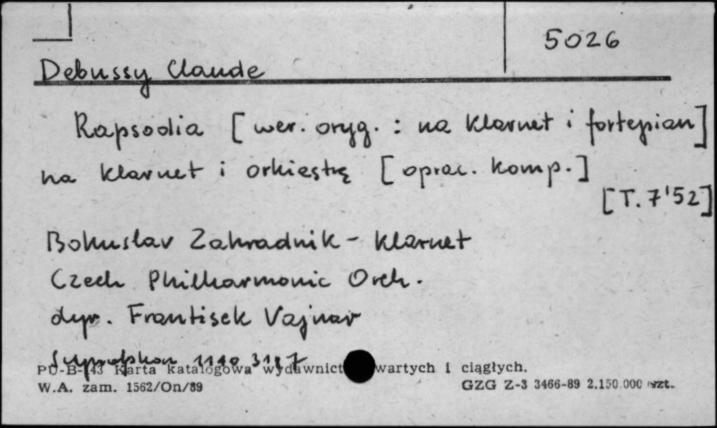 5026
Debussy Claude
Rapsodia [wer. oryg. : na klarnet i fortepian]
na klarnet i orkiestrę [oprac. komp.]
[T. 7'52]
Bohuslav Zahradnik - klarnet
Czech Philharmonic Orch.
dyr. Frantisek Vajnar
Supraphon
PU-B-143 Karta katalogowa wydawnict wartych i ciągłych.
W.A. zam. 1562/On/89 GZG Z-3 3466-89 2.150.000 szt.